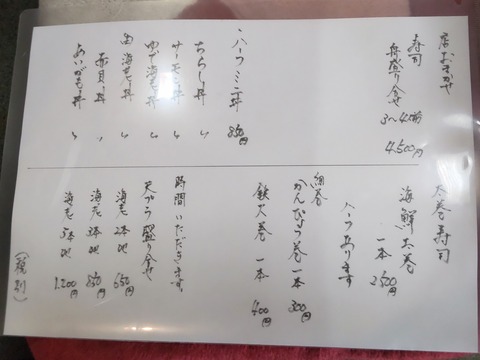 店おまかせ
寿司
舟盛り合せ
3〜4人前
4,500円
ハーフミニ丼 850円
ちらし丼 〃
サーモン丼 〃
ゆで海老丼 〃
生海老丼 〃
赤貝丼 〃
あいがも丼 〃
太巻寿司
海鮮太巻
一本 2500円
ハーフあります
細巻
かんぴょう巻 一本 300円
鉄火巻 一本 400円
時間いただきます。
天ぷら盛り合せ
海老2本他 650円
海老3本他 850円
海老5本他 1,200円
(税別)